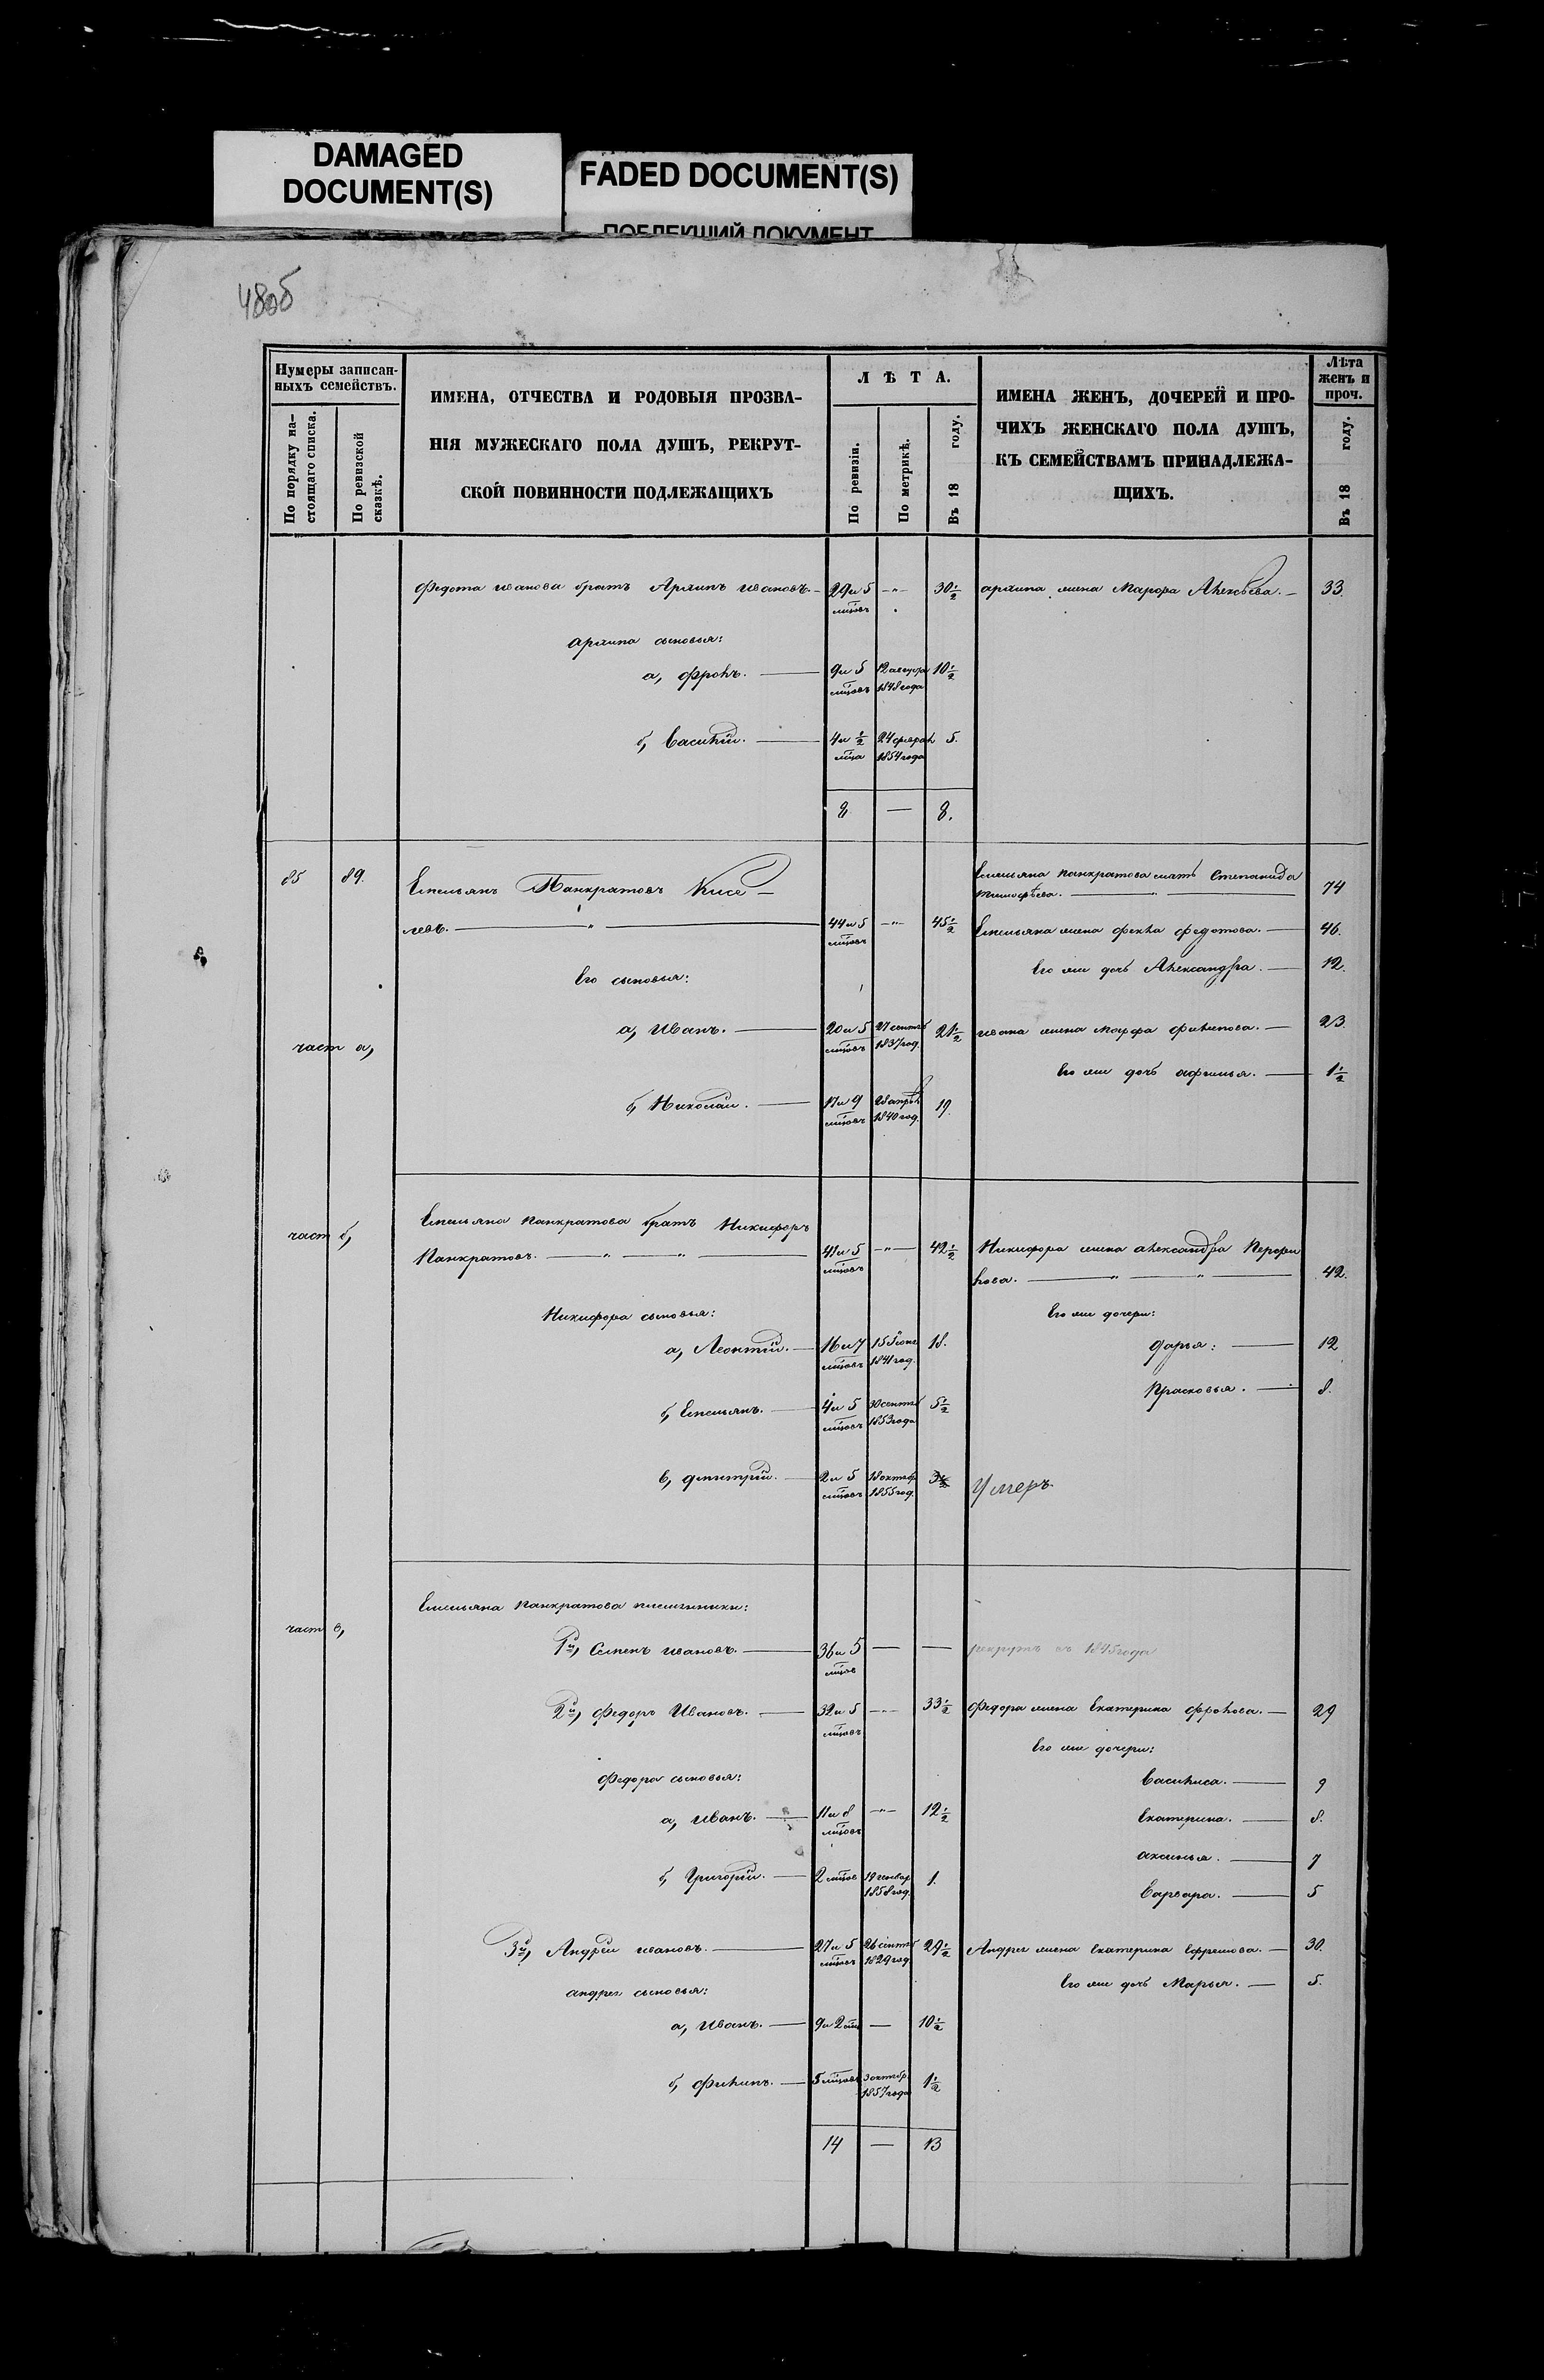 DAMAGED
DOCUMENT(S)
FADED DOCUMENT(S)
ПОБЛЕКШИЙ ДОКУМЕНТ
48об
Нумеры записан-
ныхъ семействъ.
По порядку на-
стоящаго списка.
По ревизской
сказкѣ.
ИМЕНА, ОТЧЕСТВА И РОДОВЫЯ ПРОЗВА-
НІЯ МУЖЕСКАГО ПОЛА ДУШЪ, РЕКРУТ-
СКОЙ ПОВИННОСТИ ПОДЛЕЖАЩИХЪ
ЛѢТА.
По ревизіи.
По метрикѣ.
Въ 18 году.
ИМЕНА ЖЕНЪ, ДОЧЕРЕЙ И ПРО-
ЧИХЪ ЖЕНСКАГО ПОЛА ДУШЪ,
КЪ СЕМЕЙСТВАМЪ ПРИНАДЛЕЖА-
ЩИХЪ.
Лѣта
женъ и
проч.
Въ 18 году.
Федота иванова братъ Архипъ ивановъ. 29 и 5 мцовъ — " — 30 1/2 архипа жена Марфа Алексѣева. — 33.
архипа сыновья:
а, Фролъ. — 9 и 5 мцовъ 12 августа 1848 года 10 1/2
б, Василій. — 4 и 1/2 мца 24 феврал 1854 года 5.
8 — 8.
85 89. Емельянъ Панкратовъ Кисе-
левъ. — " — 44 и 5 мцовъ — " — 45 1/2
Емельяна панкратова мать Степанида
тимофѣева. — " — 74
Емельяна жена фекла федотова. — 46.
Его сыновья:
Его же дочь Александра. — 12.
част а,
а, Иванъ. — 20 и 5 мцовъ 27 сентяб 1837 год. 21 1/2 ивана жена марфа филипова. — 23.
его же дочь афимья. — 1 1/2
б, Николай. — 17 и 9 мцовъ 28 апрѣл 1840 год. 19.
част б,
Емельяна панкратова братъ Никифоръ
Панкратовъ. — " — " — 41 и 5 мцовъ — " — 42 1/2
Никифора жена александра Перфи
лова. — " — " — 42.
Никифора сыновья:
Его же дочери:
а, Леонтій. — 16 и 7 мцовъ 15 Іюня 1841 год. 18.
дарья: — 12
Прасковья. — 8.
б, Емельянъ. — 4 и 5 мцовъ 30 сентяб 1853 года 5 1/2
в, дмитрій. — 2 и 5 мцовъ 18 октяб 1855 год. 3 1/2 Умеръ.
част в,
Емельяна панкратова племянники:
1й, Семенъ ивановъ. — 36 и 5 мцов — — рекрутъ въ 1845 года
2й, Федоръ Ивановъ. — 32 и 5 мцовъ — " — 33 1/2 Федора жена Екатерина фролова. — 29
Его же дочери:
Федора сыновья:
Василиса. — 9
а, иванъ. — 11 и 8 мцовъ — " — 12 1/2
Екатерина. — 8.
аксинья. — 7
б, Григорій. — 2 мцов 19 генвар 1858 год. 1.
Варвара. — 5
3й, Андрей ивановъ. — 27 и 5 мцовъ 26 сентяб 1829 год 29 1/2 Андрея жена екатерина ефремова. — 30.
Его же дочь Марья. — 5.
андрея сыновья:
а, Иванъ. — 9 и 2 мц — 10 1/2
б, Филипъ. — 5 мцовъ 3 октябр. 1857 года 1 1/2
14 — 13